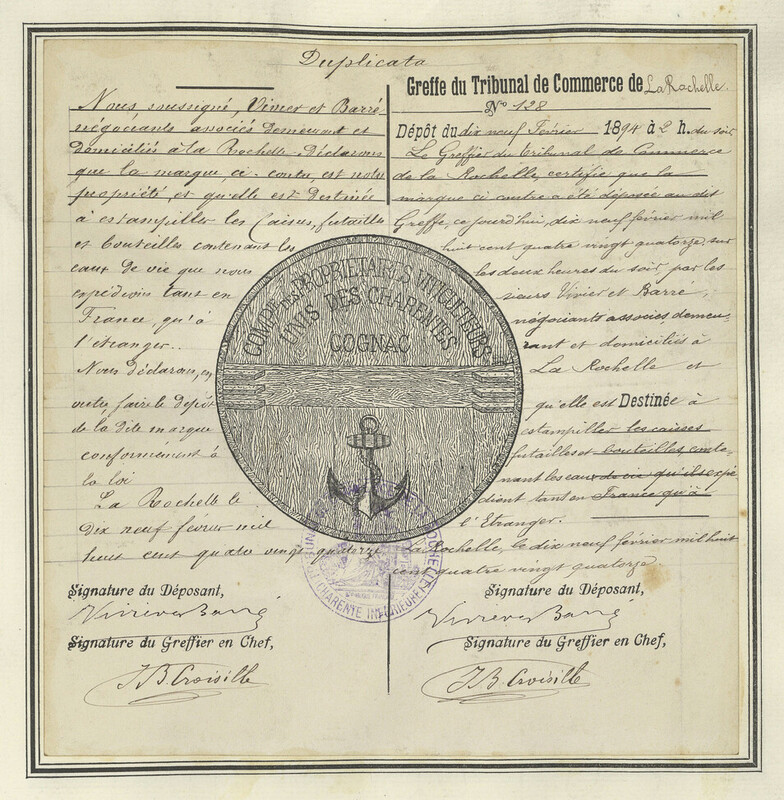 Duplicata
Nous soussigné, Vivier et Barré
négociants associés demeurant et
domiciliés à la Rochelle. Déclarons
que la marque ci-contre, est notre
propriété, et qu'elle est Destinée
à estampiller les Caisses, futailles
et bouteilles contenant les
eaux de vie que nous
expédions tant en
France, qu'à
l'étranger..
Nous déclarons, en
outre faire le dépôt
de la dite marque
conformément à
la loi
La Rochelle le
Dix neuf février mil
huit cent quatre vingt quatorze
Signature du Déposant,
Vivier & Barré
Signature du Greffier en Chef,
J B Croisille
COMPIE DES PROPRIETAIRES VINICULTEURS
UNIS DES CHARENTES
COGNAC
Greffe du Tribunal de Commerce de La Rochelle.
No 128
Dépôt du dix neuf Février 1894 à 2 h. du soir
Le Greffier du Tribunal de Commerce
de la Rochelle, certifie que la
marque ci contre a été déposée au dit
Greffe, ce jourd'hui, dix neuf février mil
huit cent quatre vingt quatorze, sur
les deux heures du soir, par les
sieurs Vivier et Barré,
négociants associés, demeu-
rant et domiciliés à
La Rochelle et
qu'elle est Destinée à
estampiller les caisses
futailles et bouteilles conte-
nant les eaux de vie qu'ils expé
dient tant en France qu'à
l'Etranger.
La Rochelle, le dix neuf février mil huit
cent quatre vingt quatorze.
Signature du Déposant,
Vivier & Barré
Signature du Greffier en Chef,
J B. Croisille
ROCHELLE
CHARENTE INFÉRIEURE